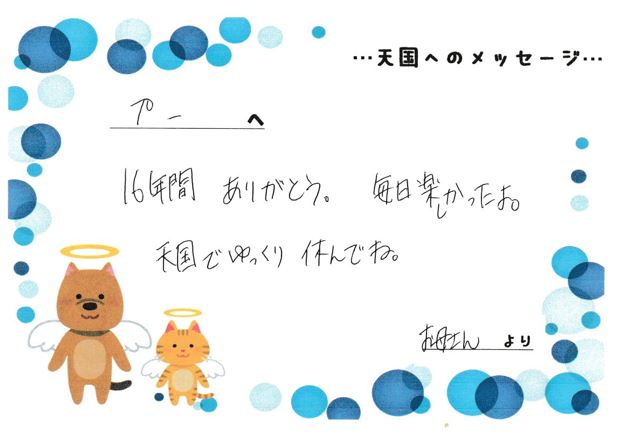 …天国へのメッセージ…
プーへ
16年間 ありがとう。 毎日楽しかったよ。
天国でゆっくり休んでね。
お母さんより